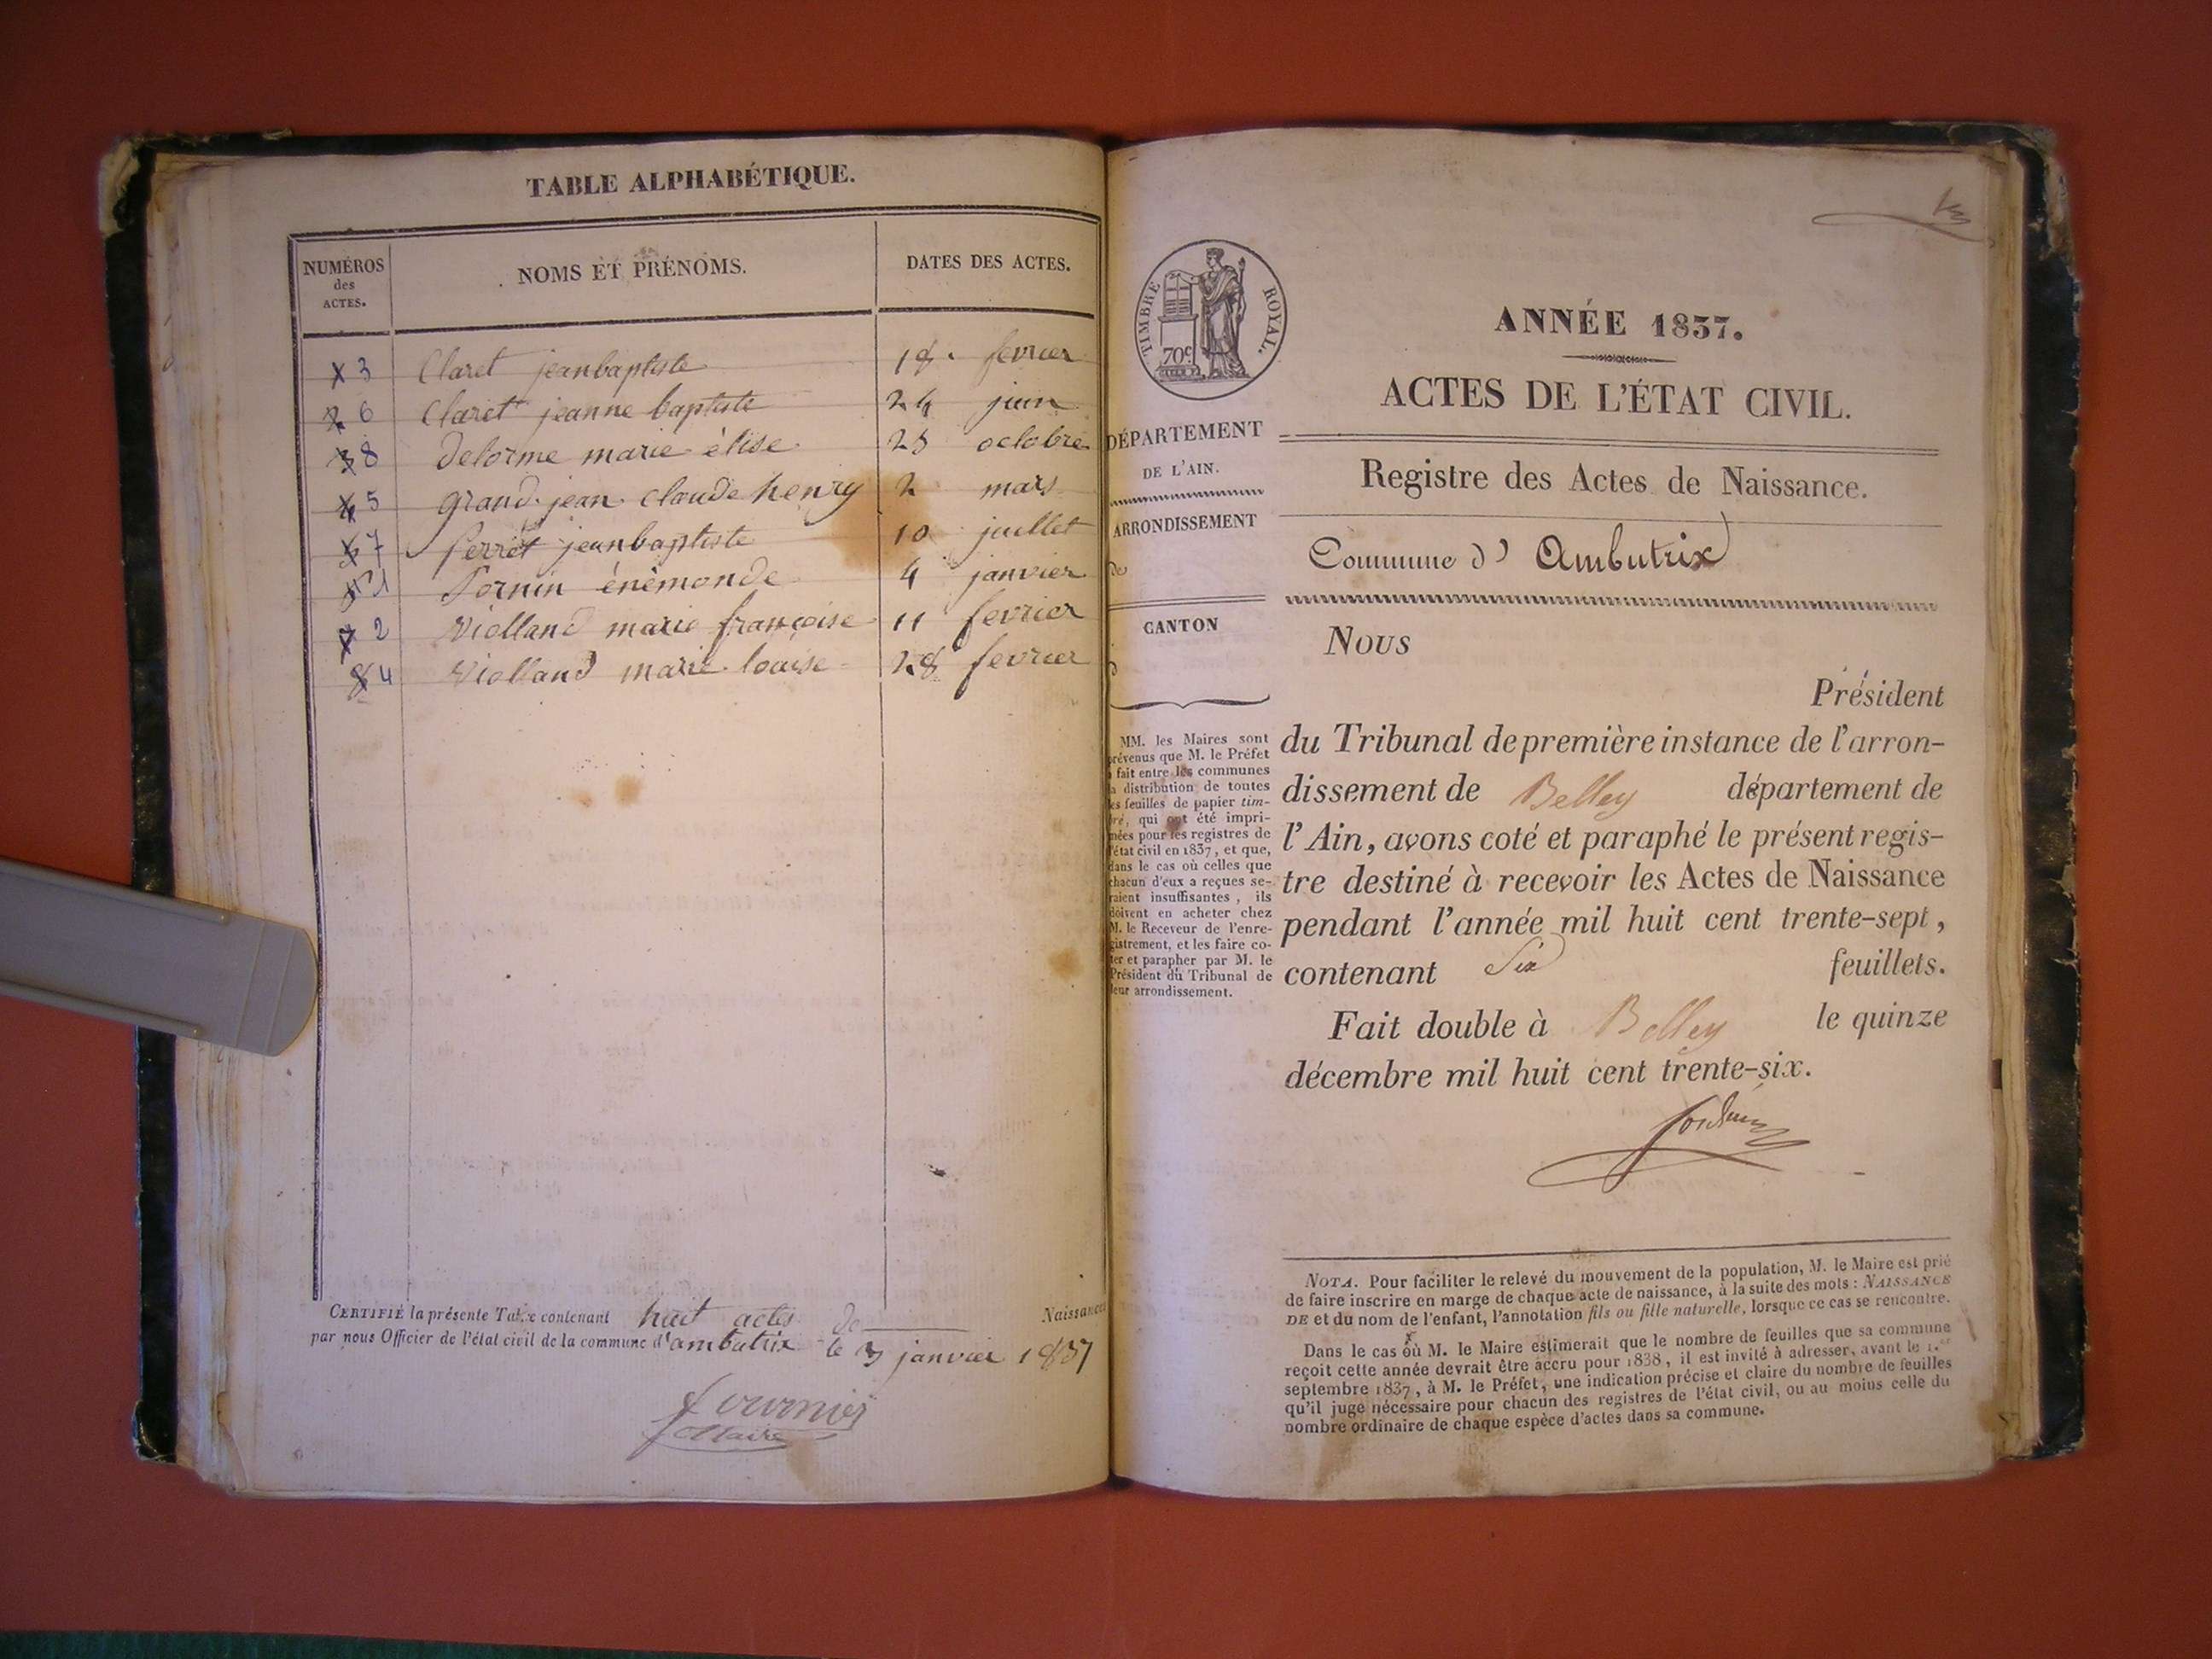 TABLE ALPHABÉTIQUE.
NUMÉROS des ACTES.
NOMS ET PRÉNOMS.
DATES DES ACTES.
3 Claret jeanbaptiste 18 fevrier
6 Claret jeanne baptiste 24 juin
8 delorme marie élise 25 octobre
5 grand-jean claude henry 2 mars
7 perret jeanbaptiste 10 juillet
1 Pornin énémonde 4 janvier
2 Violland marie françoise 11 fevrier
4 Violland marie louise 28 fevrier
CERTIFIÉ la présente Table contenant huit actes de Naissances
par nous Officier de l'état civil de la commune d'ambutrix le 3 janvier 1837
fournier
Maire
TIMBRE ROYAL.
70c
DÉPARTEMENT
DE L'AIN.
ARRONDISSEMENT
de
CANTON
d
MM. les Maires sont
prévenus que M. le Préfet
a fait entre les communes
la distribution de toutes
les feuilles de papier tim-
bré, qui ont été impri-
mées pour les registres de
l'état civil en 1837, et que,
dans le cas où celles que
chacun d'eux a reçues se-
raient insuffisantes, ils
doivent en acheter chez
M. le Receveur de l'enre-
gistrement, et les faire co-
ter et parapher par M. le
Président du Tribunal de
leur arrondissement.
ANNÉE 1837.
ACTES DE L'ÉTAT CIVIL.
Registre des Actes de Naissance.
Commune d' Ambutrix
Nous
Président
du Tribunal de première instance de l'arron-
dissement de Belley département de
l'Ain, avons coté et paraphé le présent regis-
tre destiné à recevoir les Actes de Naissance
pendant l'année mil huit cent trente-sept,
contenant Six feuillets.
Fait double à Belley le quinze
décembre mil huit cent trente-six.
NOTA. Pour faciliter le relevé du mouvement de la population, M. le Maire est prié
de faire inscrire en marge de chaque acte de naissance, à la suite des mots : NAISSANCE
DE et du nom de l'enfant, l'annotation fils ou fille naturelle, lorsque ce cas se rencontre.
Dans le cas où M. le Maire estimerait que le nombre de feuilles que sa commune
reçoit cette année devrait être accru pour 1838, il est invité à adresser, avant le 1.er
septembre 1837, à M. le Préfet, une indication précise et claire du nombre de feuilles
qu'il juge nécessaire pour chacun des registres de l'état civil, ou au moins celle du
nombre ordinaire de chaque espèce d'actes dans sa commune.